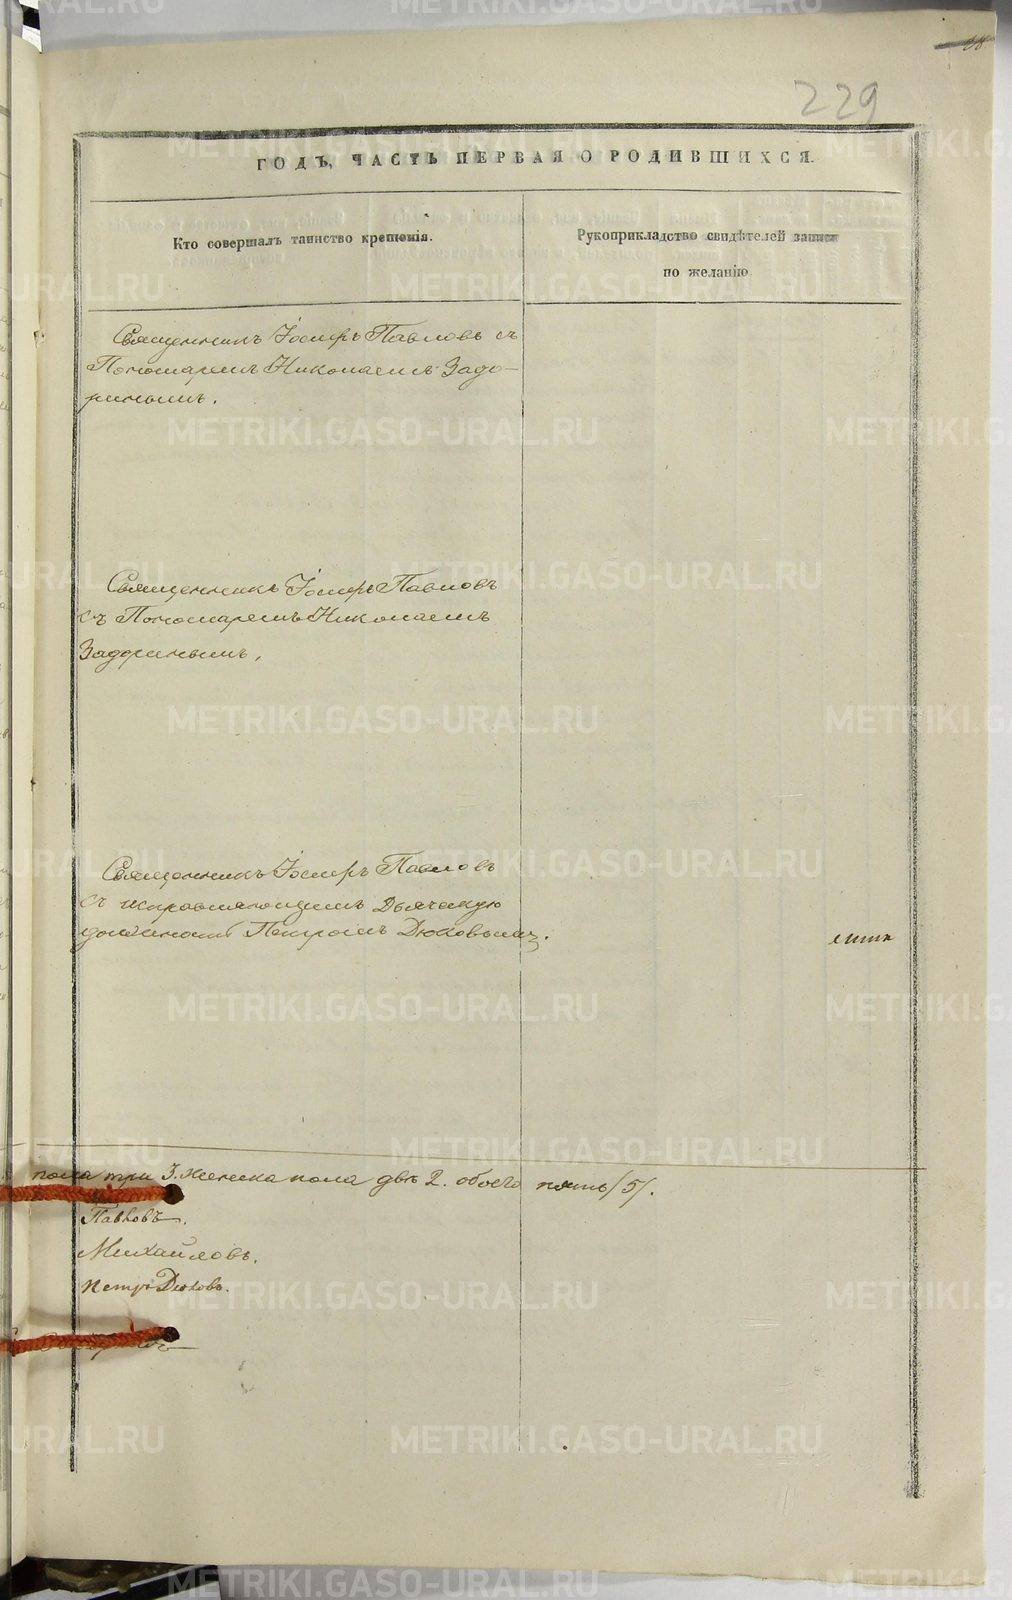 229
ГОДЪ, ЧАСТЬ ПЕРВАЯ О РОДИВШИХСЯ.
Кто совершалъ таинство крещенія.
Рукоприкладство свидѣтелей записи
по желанію
Священникъ Іосифъ Павловъ съ
Пономаремъ Николаемъ Задо-
ринымъ.
Священникъ Іосифъ Павловъ
съ Пономаремъ Николаемъ
Задоринымъ.
Священникъ Іосифъ Павловъ
съ исправляющимъ Дьяческую
должность Петромъ Дюковымъ.
пола три 3. женска пола двѣ 2. обоего пять /5/.
Павловъ.
Михайловъ.
Петръ Дюковъ.
METRIKI.GASO-URAL.RU